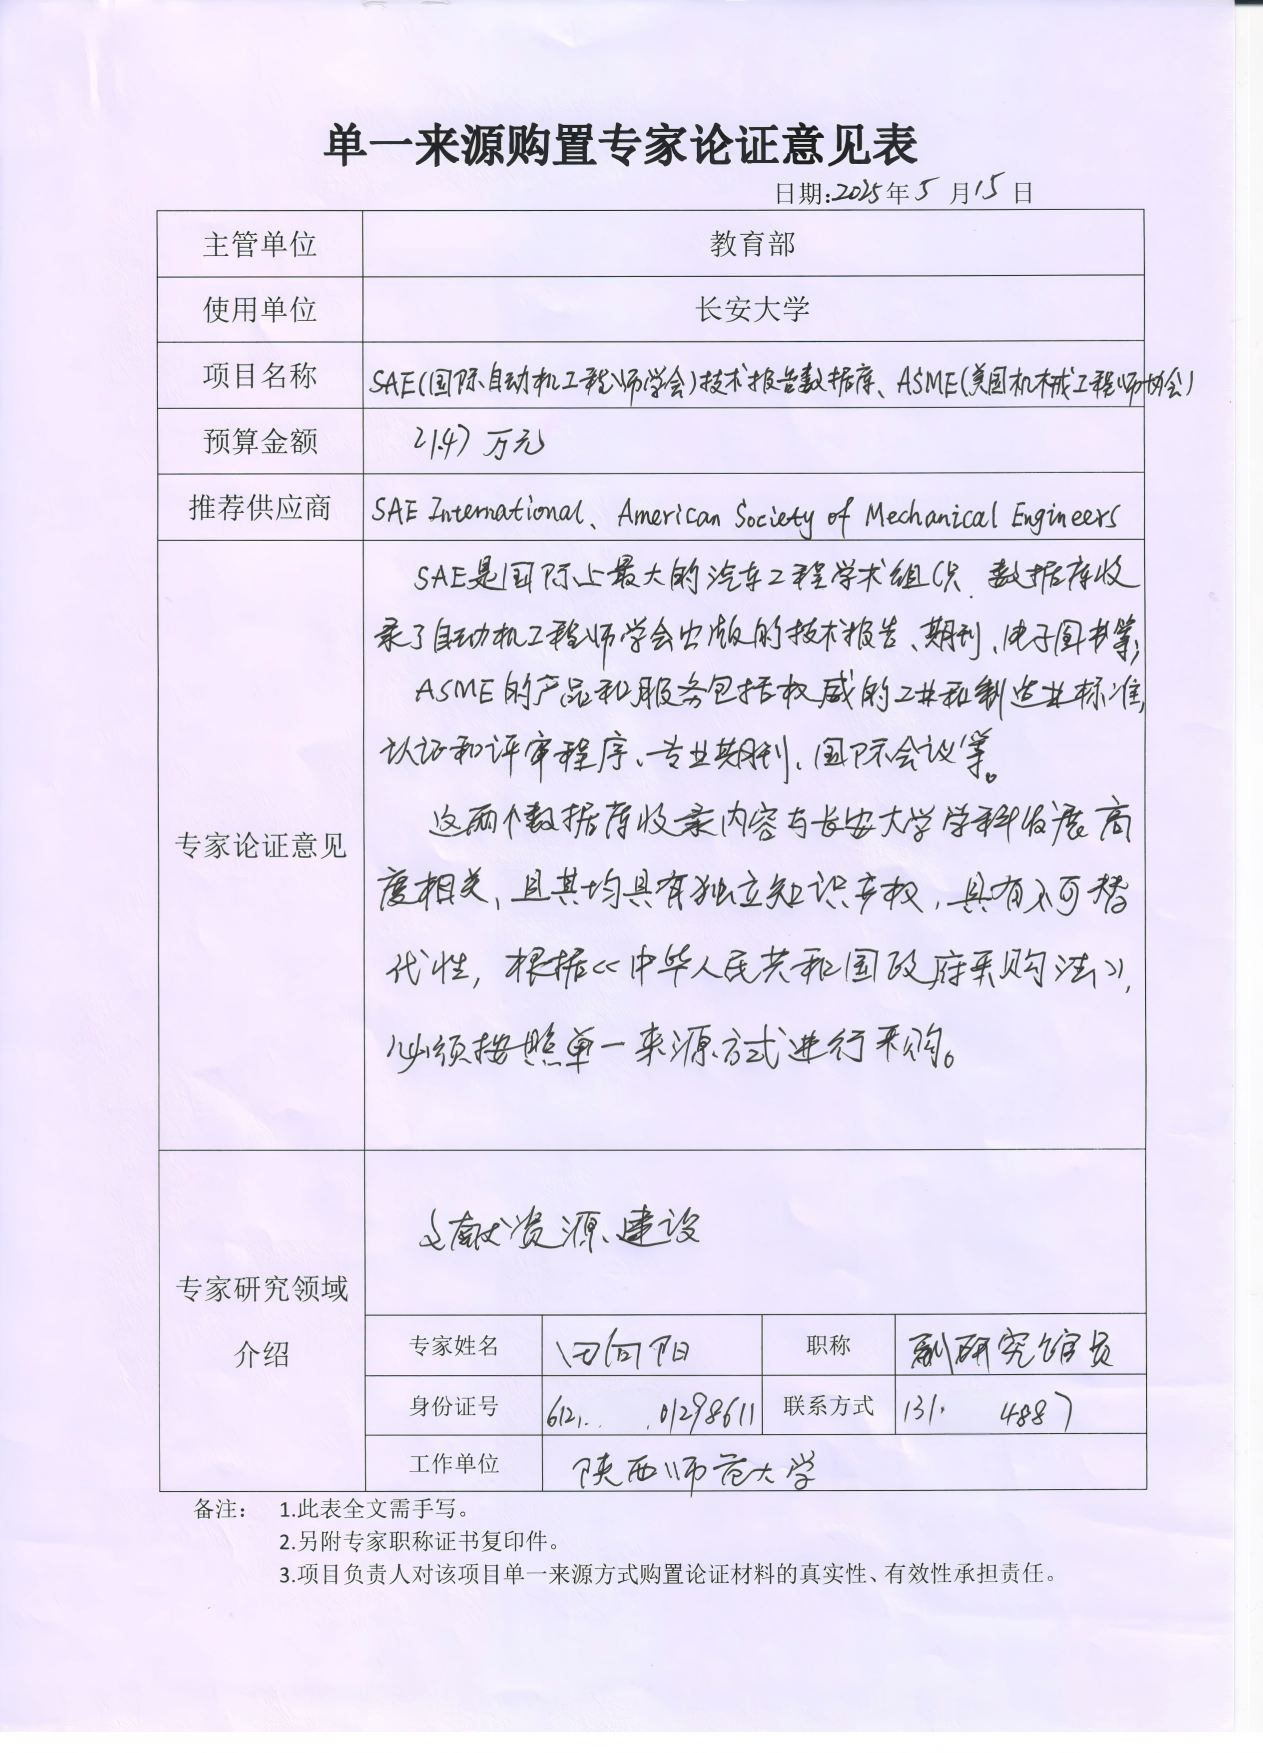 单一来源购置专家论证意见表
日期:2025年5月15日
主管单位 教育部
使用单位 长安大学
项目名称 SAE(国际自动机工程师学会)技术报告数据库、ASME(美国机械工程师协会)
预算金额 21.47万元
推荐供应商 SAE International、American Society of Mechanical Engineers
专家论证意见
SAE是国际上最大的汽车工程学术组织.数据库收
录了自动机工程师学会出版的技术报告、期刊、电子图书等;
ASME的产品和服务包括权威的工业和制造业标准,
认证和评审程序、专业期刊、国际会议等。
这两个数据库收录内容与长安大学学科发展高
度相关,且其均具有独立知识产权,具有不可替
代性,根据《中华人民共和国政府采购法》,
必须按照单一来源方式进行采购。
专家研究领域
介绍
文献资源建设
专家姓名 田向阳 职称 副研究馆员
身份证号 612 01298611 联系方式 131 4887
工作单位 陕西师范大学
备注: 1.此表全文需手写。
2.另附专家职称证书复印件。
3.项目负责人对该项目单一来源方式购置论证材料的真实性、有效性承担责任。